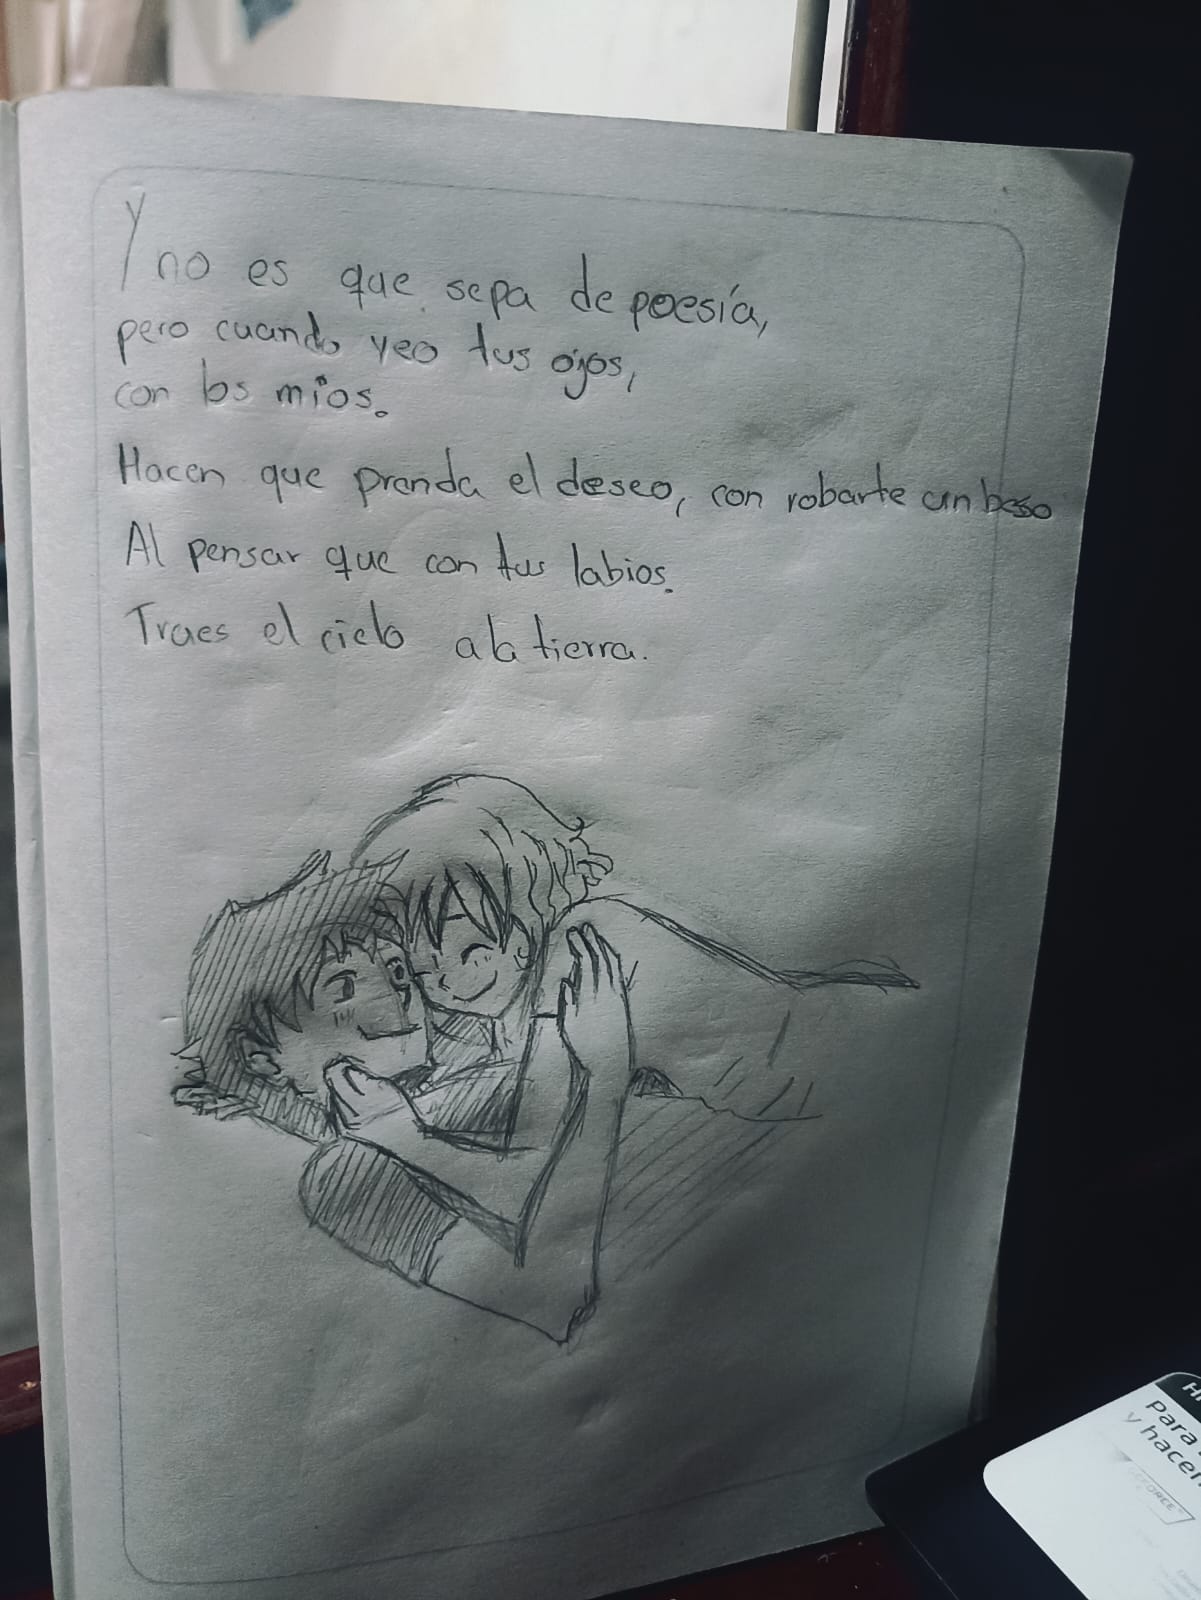 Y no es que sepa de poesía,
pero cuando veo tus ojos,
con los mios.
Hacen que prenda el deseo, con robarte un beso
Al pensar que con tus labios.
Traes el cielo a la tierra.
Para
y hacer